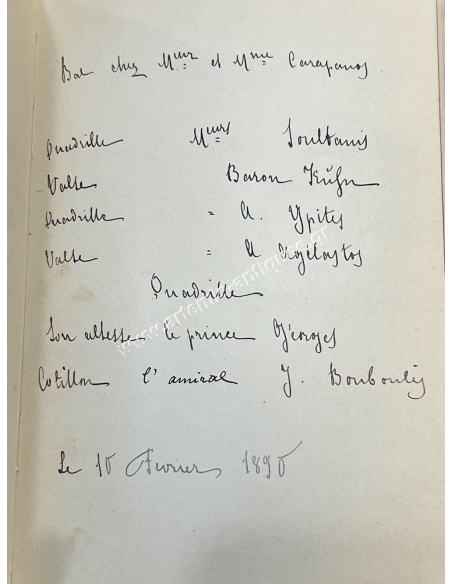 Bal chez Meur et Mme Carapanos
Quadrille Meurs Soultanis
Valse Baron Kühn
Quadrille = A. Ypitis
Valse = A Agélastos
Quadrille
Son altesse le prince Géorges
Cotillon l'amiral J. Bouboulis
Le 10 Février 1890